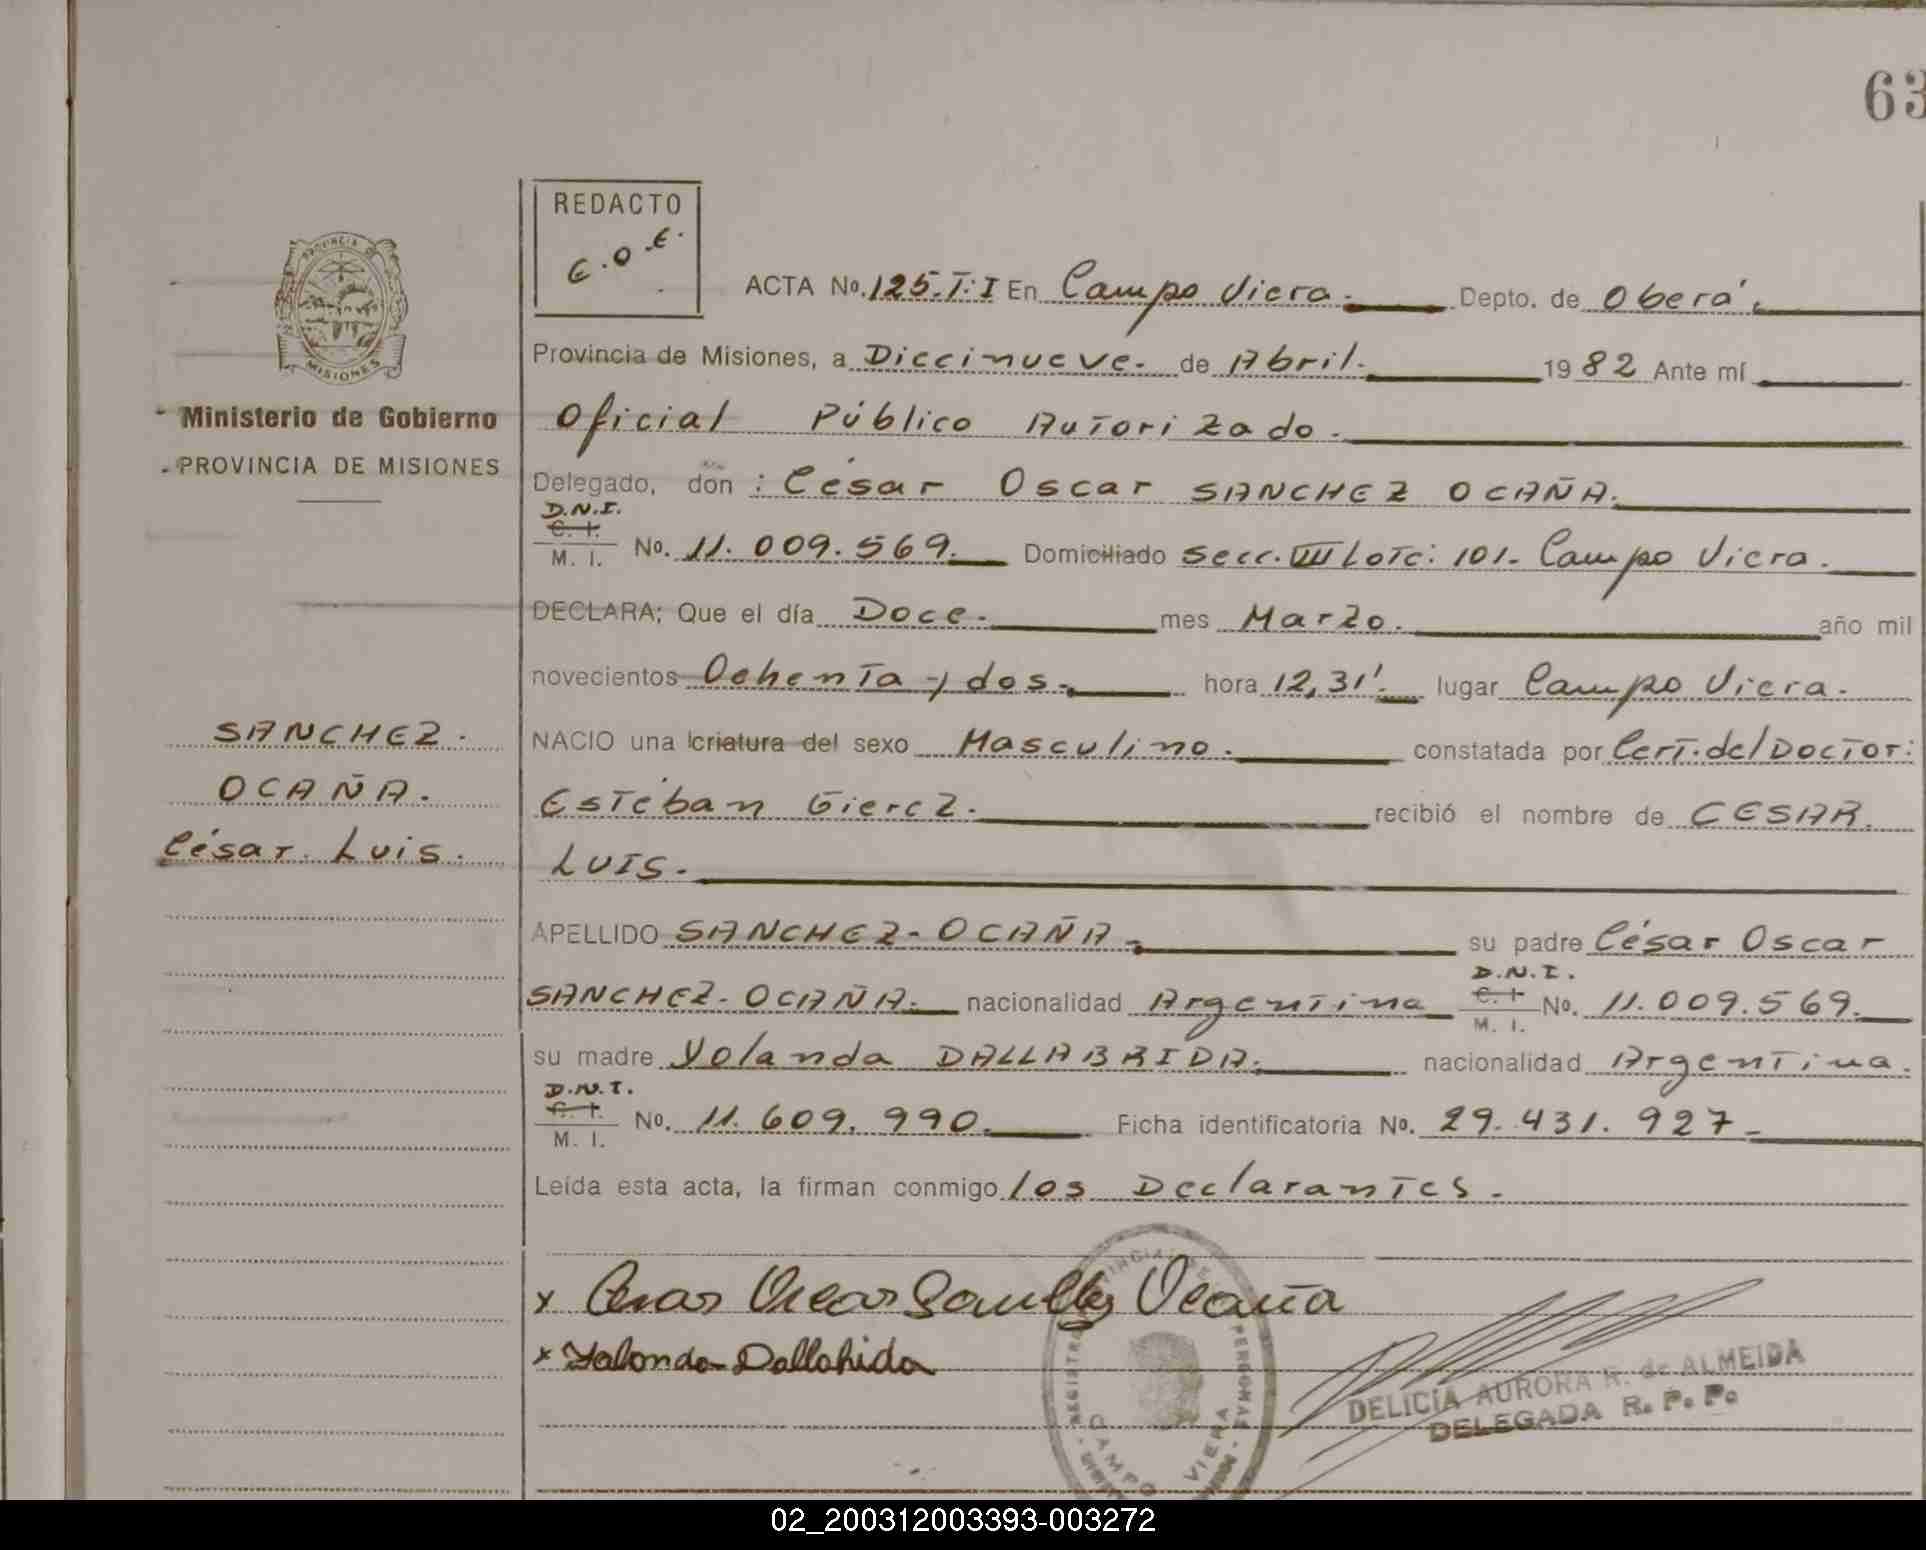 63
REDACTO
E.O.E.
PROVINCIA DE
MISIONES
Ministerio de Gobierno
PROVINCIA DE MISIONES
SANCHEZ.
OCAÑA.
César Luis.
ACTA No. 125.T:I En Campo Viera. Depto. de Oberá.
Provincia de Misiones, a Diecinueve. de Abril. 1982 Ante mí
Oficial Público Autorizado.
Delegado, don : César Oscar SANCHEZ OCAÑA.
D.N.I.
C. I.
M. I. No. 11.009.569. Domiciliado Secc. VIII Lote: 101. Campo Viera.
DECLARA; Que el día Doce. mes Marzo. año mil
novecientos Ochenta y dos. hora 12,31'. lugar Campo Viera.
NACIO una criatura del sexo Masculino. constatada por Cert. del Doctor:
Estéban Giercz. recibió el nombre de CESAR
LUIS.
APELLIDO SANCHEZ-OCAÑA. su padre César Oscar
SANCHEZ-OCAÑA. nacionalidad Argentina D.N.I. C. I. M. I. No. 11.009.569.
su madre Yolanda DALLABRIDA. nacionalidad Argentina.
D.N.I.
C. I.
M. I. No. 11.609.990. Ficha identificatoria No. 29.431.927
Leída esta acta, la firman conmigo los Declarantes.
x Cesar Oscar Sanchez Ocaña
x Yolanda Dallabrida
CAMPO VIERA
DELICIA AURORA R. de ALMEIDA
DELEGADA R. P. P.
02_200312003393-003272